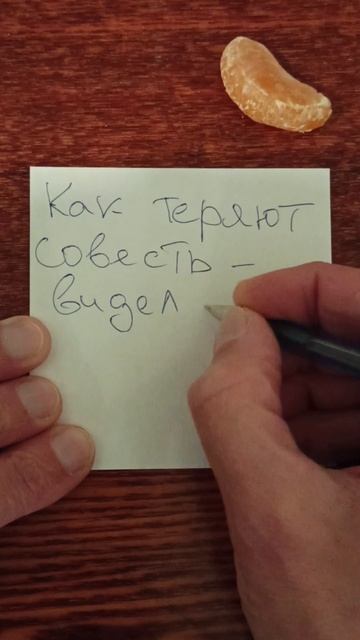 Как теряют
совесть -
видел